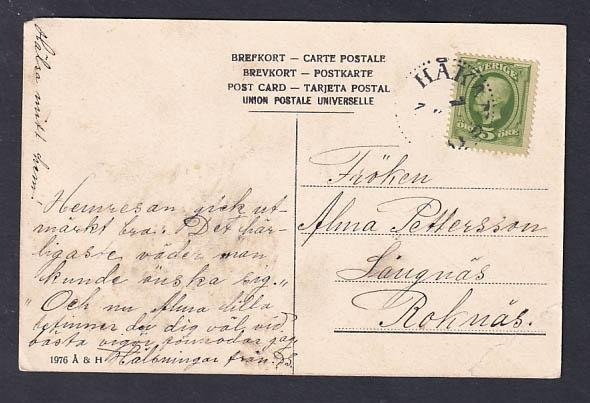 Hälsa mitt hem.
BREFKORT – CARTE POSTALE
BREVKORT – POSTKARTE
POST CARD – TARJETA POSTAL
UNION POSTALE UNIVERSELLE
SVERIGE
5 ÖRE
HÅK
Fröken
Alma Pettersson
Långnäs
Roknäs.
Hemresan gick ut-
märkt bra. Det här-
ligaste väder man
kunde önska sig."
"Och nu Alma lilla
befinner du dig väl, vid
bästa vigör, förmodar jag
Hälsningar från
1976 Å & H